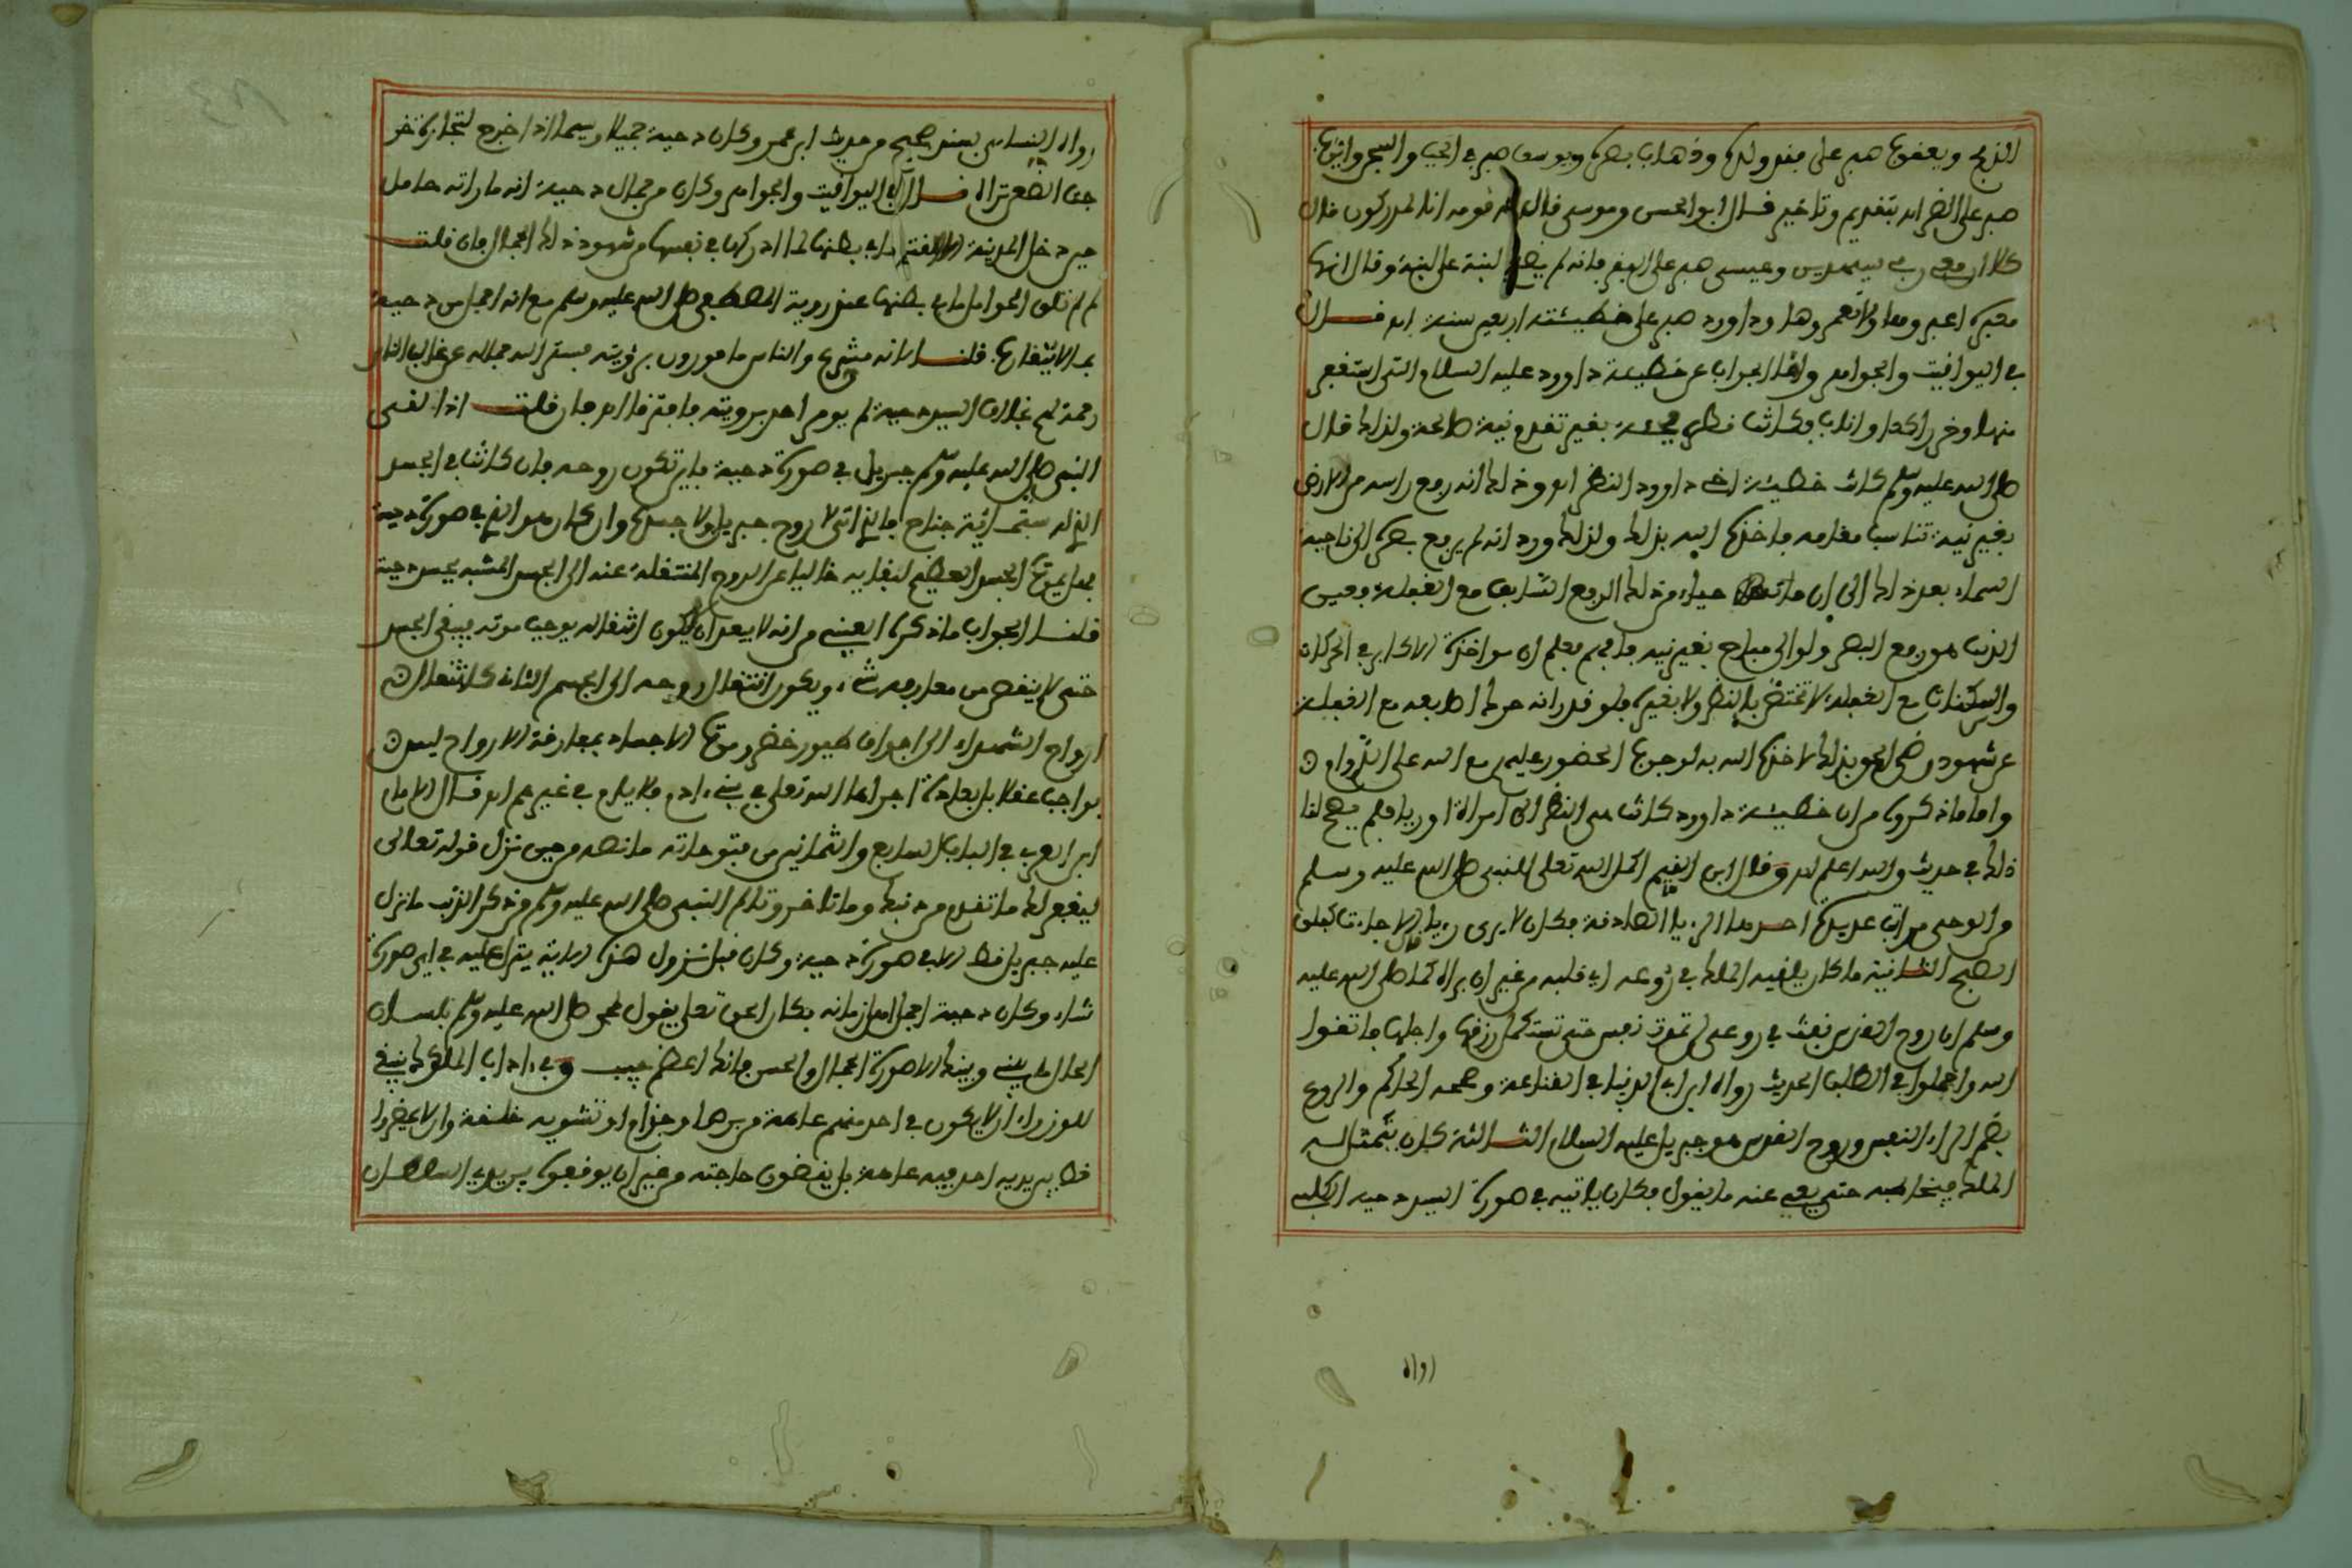 الذبح ويعقوب صبر على فقد ولده وذهاب بصره ويوسف صبر في الجب والسجن وأيوب
صبر على الضر اهـ بتقديم وتأخير قال أبو الحسن وموسى قال له قومه انا لمدركون قال
كلا ان معي ربي سيهدين وعيسى صبر على الفقر فانه لم يضع لبنة على لبنة وقال انها
معبرة اعبروها ولا تعمروها وداوود صبر على خطيئته اربعين سنة اهـ قال
في اليواقيت والجواهر واما الجواب عن خطيئة داوود عليه السلام التي استغفر
منها وخر راكعا واناب فكانت نظر فجأة بغير تقدم نية صالحة ولذلك قال
صلى الله عليه وسلم كانت خطيئة اخي داوود النظر اهـ وذلك انه رفع راسه من الارض
بغير نية تناسب مقامه فاخذه الله بذلك ولذلك ورد انه لم يرفع بصره الى ناحية
السماء بعد ذلك الى ان مات حياء من ذلك الرفع السابق مع الغفلة فعين
الذنب هو رفع البصر ولو الى مباح بغير نية فافهم فعلم ان مؤاخذة الاكابر في الحركات
والسكنات مع الغفلة لا تختص بالنظر ولا بغيره فلو قدر انه حرك اصبعه مع الغفلة
عن شهود رضى الحق بذلك لاخذه الله به لوجوب الحضور عليهم مع الله على الدوام
واما ما ذكروه من ان خطيئة داوود كانت هي النظر الى امراة اوريا فلم يصح لنا
ذلك في حديث والله اعلم اهـ وقال ابن القيم اكمل الله تعلى للنبي صلى الله عليه وسلم
من الوحي مراتب عديدة احدها الرؤيا الصادقة فكان لا يرى رؤيا الا جاءت كفلق
الصبح الثانية ما كان يلقيه الملك في روعه اي قلبه من غير ان يراه كما صلى الله عليه
وسلم ان روح القدس نفث في روعي لن تموت نفس حتى تستكمل رزقها واجلها فاتقوا
الله واجملوا في الطلب الحديث رواه ابن ابي الدنيا في القناعة وصححه الحاكم والروع
بضم الراء النفس وروح القدس هو جبريل عليه السلام الثالثة كان يتمثل له
الملك فيخاطبه حتى يعي عنه ما يقول فكان ياتيه في صورة السيد دحية الكلبي
رواه
رواه النسائي بسند صحيح من حديث ابن عمر وكان دحية جميلا وسيما اذا خرج لتجارة خر
جن الضعن تراه قال في اليواقيت والجواهر وكان من جمال دحية انه ما راته حامل
حين دخل المدينة الا القت ما في بطنها لما ادركها في نفسها من شهود ذلك الجمال فان قلت
لم لم تلق الحوامل ما في بطنها عند روية المصطفى صلى الله عليه وسلم مع انه اجمل من دحية
بما لا يتقارب قلنا لانه مشرع والناس مامورون برؤيته فستر الله جماله عن غالب الناس
رحمة لهم بخلاف السيد دحية لم يومر احد برويته فافترقا اهـ فان قلت اذا لقى
النبي صلى الله عليه وسلم جبريل في صورة دحية فاين تكون روحه فان كانت في الجسد
الذي له ستمائة جناح فالذي اتى لا روح جبريل ولا جسده وان كان هو الذي في صورة دحية
فهل يموت الجسد العظيم لبقايه خاليا عن الروح المنتقلة عنه الى الجسد المشبه بجسد دحية
قلنا الجواب ما ذكره العيني من انه لا يبعد ان لا يكون انتقاله يوجب موته فيبقى الجسد
حتى لا ينقص من معارفه شيء ويكون انتقال روحه الى الجسم الثاني كانتقال
ارواح الشهداء الى اجواف طيور خضر وموت الاجساد بمفارقة الارواح ليس
بواجب عقلا بل بعادة اجراها الله تعلى في بني ءادم فلا يلزم في غيرهم اهـ قال الامام
ابن العربي في الباب السابع والثمانين من فتوحاته ما نصه من حين نزل قوله تعالى
ليغفر لك ما تقدم من ذنبك وما تاخر وتالم النبي صلى الله عليه وسلم من ذكر الذنب ما نزل
عليه جبريل قط الا في صورة دحية وكان قبل نزول هذه الاية ينزل عليه في اي صورة
شاء وكان دحية اجمل اهل زمانه فكان الحق تعلى يقول لمحمد صلى الله عليه وسلم بلسان
الحال ما بيني وبينك الا صورة الجمال والحسن فانك اعظم حبيب وفي اداب الملوك ينبغي
للوزراء ان لا يكون في احد منهم عاهة من برص او جذام او تشويه خلقة وان لا يحضروا
قط بين يديه احد فيه عاهة بل يقضون حاجته من غير ان يوقفوه بين يدي السلطان